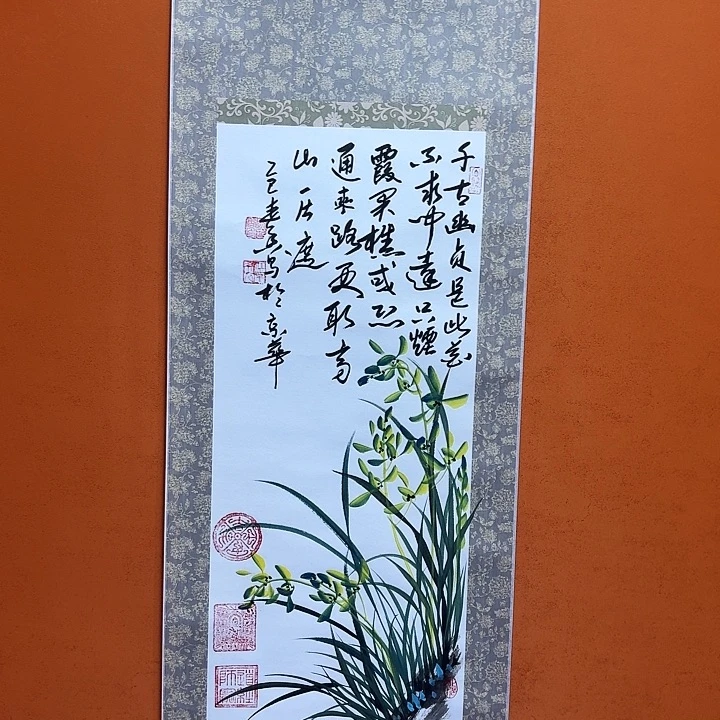 千古幽贞是此花
不求闻達只煙
霞采樵或恐
通來路更取高
山一片遮
写於京華